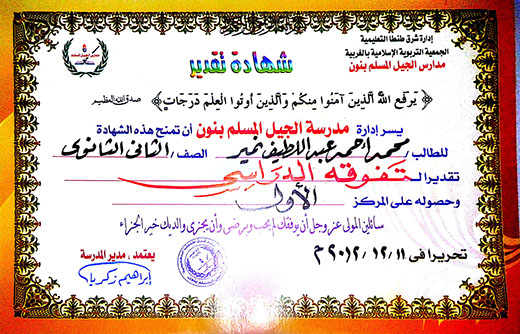 إدارة شرق طنطا التعليمية
الجمعية التربوية الإسلامية بالغربية
مدارس الجيل المسلم بنون
شهادة تقدير
﴿ يَرْفَعِ اللَّهُ الَّذِينَ آمَنُوا مِنكُمْ وَالَّذِينَ أُوتُوا الْعِلْمَ دَرَجَاتٍ ﴾ صدق الله العظيم
يسر إدارة مدرسة الجيل المسلم بنون أن تمنح هذه الشهادة
للطالب/ محمد احمد عبد اللطيف نمير الصف/ الثانى الثانوى
تقديرا لـ تفوقه الدراسى
وحصوله على المركز الأول
سائلين المولى عز وجل أن يوفقك لما يحب ويرضى وأن يجزى والديك خير الجزاء
تحريرا فى ١١ / ١٢ / ٢٠١٢ م
يعتمد ، مدير المدرسة
إبراهيم زكريا